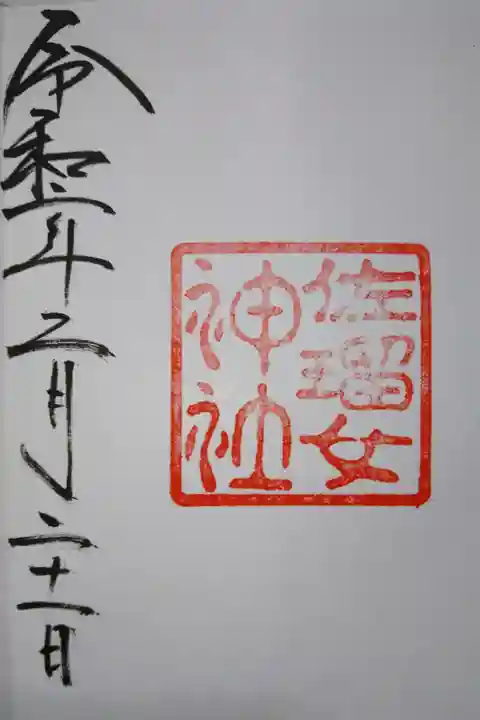 佐瑠女
神社
令和三年二月二十一日